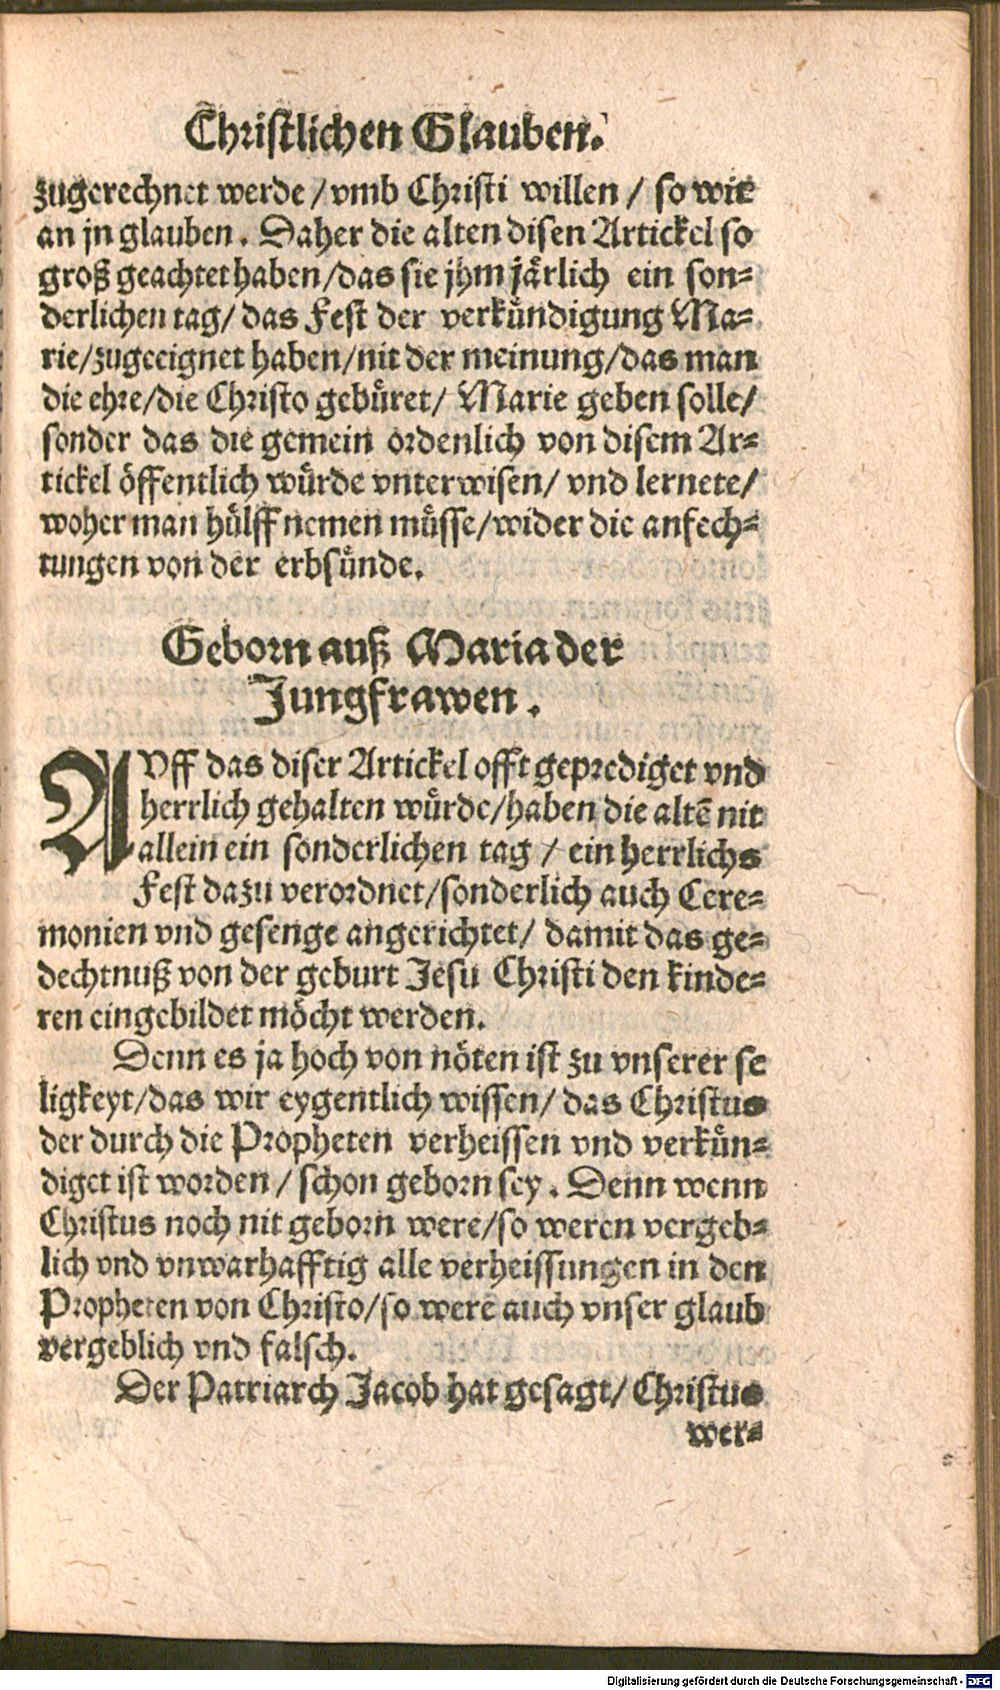 Christlichen Glauben.
zugerechnet werde /vmb Christi willen / so wir
an jn glauben. Daher die alten disen Artickel so
groß geachtet haben/das sie jhm jaͤrlich ein son⸗
derlichen tag/ das Fest der verkuͤndigung Ma⸗
rie/zugeeignet haben/nit der meinung/das man
die ehre/die Christo gebuͤret/ Marie geben solle/
sonder das die gemein ordenlich von disem Ar⸗
tickel oͤffentlich wuͤrde vnterwisen/ vnd lernete/
woher man huͤlff nemen muͤsse/wider die anfech⸗
tungen von der erbsuͤnde.
Geborn auß Maria der
Jungfrawen.
AVff das diser Artickel offt geprediget vnd
herrlich gehalten wuͤrde/haben die altē nit
allein ein sonderlichen tag / ein herrlichs
Fest dazu verordnet/sonderlich auch Cere⸗
monien vnd gesenge angerichtet/ damit das ge⸗
dechtnuß von der geburt Jesu Christi den kinde⸗
ren eingebildet moͤcht werden.
Denn es ja hoch von noͤten ist zu vnserer se
ligkeyt/das wir eygentlich wissen/ das Christus
der durch die Propheten verheissen vnd verkuͤn⸗
diget ist worden / schon geborn sey. Denn wenn
Christus noch nit geborn were/so weren vergeb⸗
lich vnd vnwarhafftig alle verheissungen in den
Propheten von Christo/so were auch vnser glaub
vergeblich vnd falsch.
Der Patriarch Jacob hat gesagt/ Christus
wer⸗
Digitalisierung gefördert durch die Deutsche Forschungsgemeinschaft - DFG